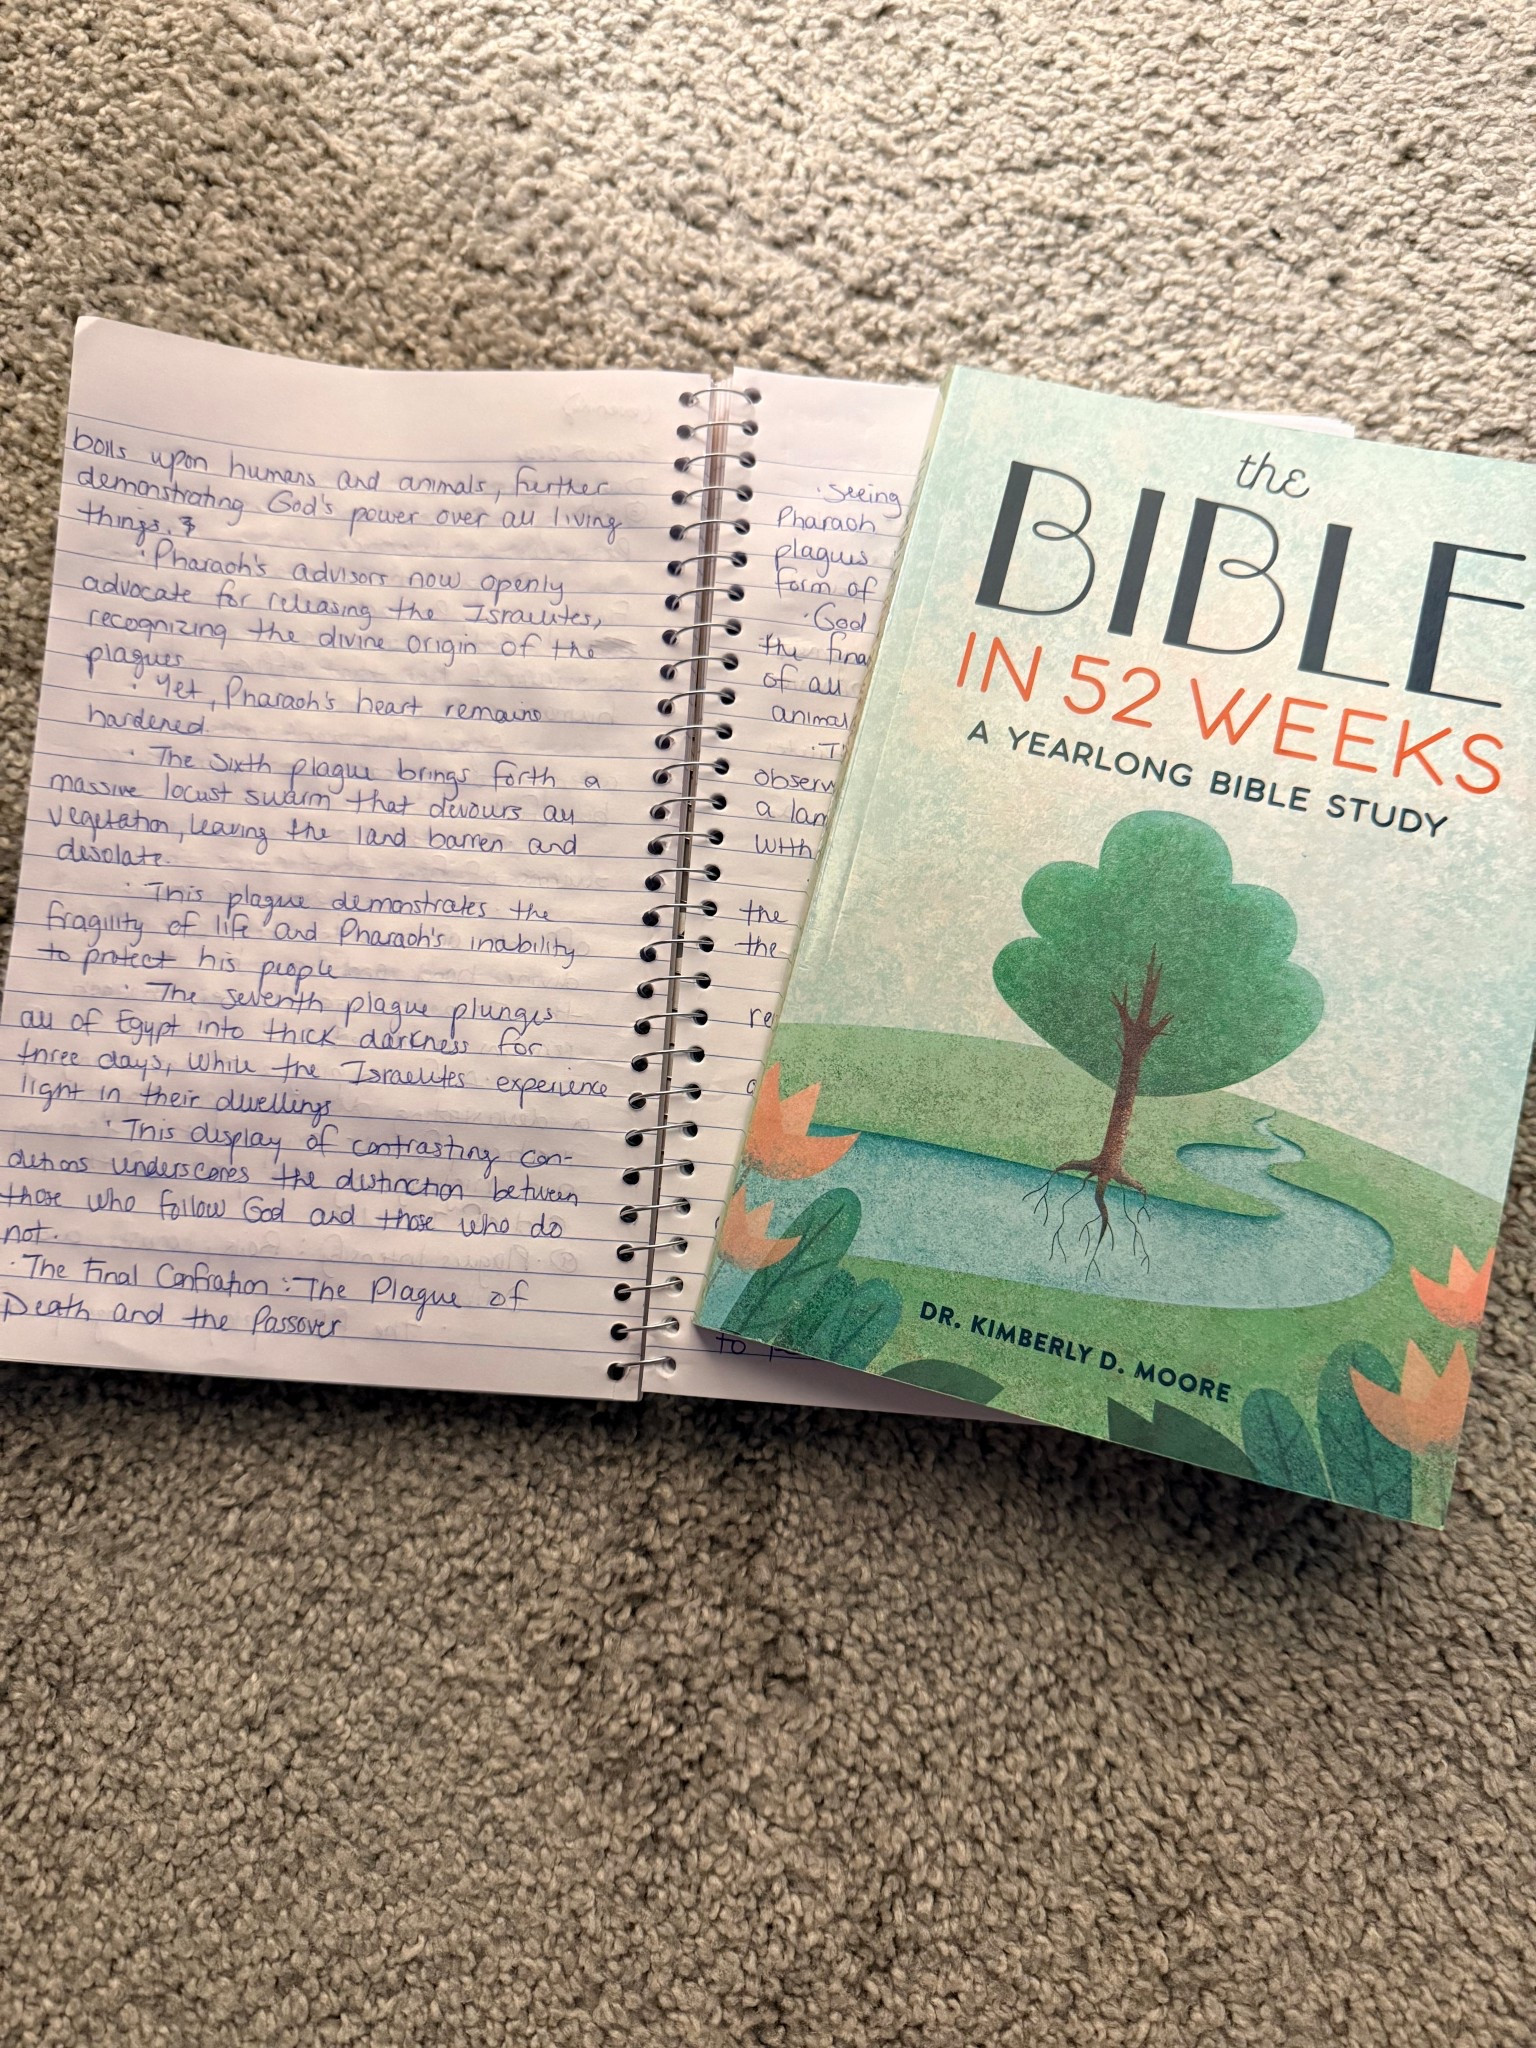 boils upon humans and animals, further
demonstrating God's power over all living
things.
· Pharaoh's advisors now openly
advocate for releasing the Israelites,
recognizing the divine origin of the
plagues
· Yet, Pharaoh's heart remains
hardened.
· The sixth plague brings forth a
massive locust swarm that devours all
vegetation, leaving the land barren and
desolate.
· This plague demonstrates the
fragility of life and Pharaoh's inability
to protect his people
· The seventh plague plunges
all of Egypt into thick darkness for
three days, while the Israelites experience
light in their dwellings
· This display of contrasting con-
ditions underscores the distinction between
those who follow God and those who do
not.
· The Final Confration: The Plague of
Death and the Passover
· Seeing
Pharaoh
plagues
form of
· God
the fina
of all
animal
· T
observ
a lam
with
the
the
re
to
the
BIBLE
IN 52 WEEKS
A YEARLONG BIBLE STUDY
DR. KIMBERLY D. MOORE